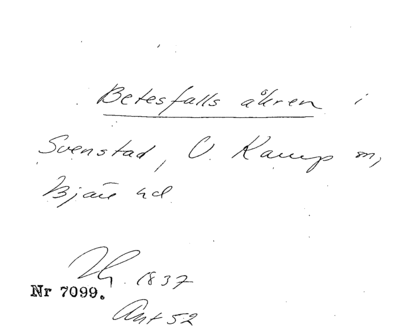 Betesfalls åkren i
Svenstad, V. Karup sn,
Bjäre hd
1837
Nr 7099.
Ant 52